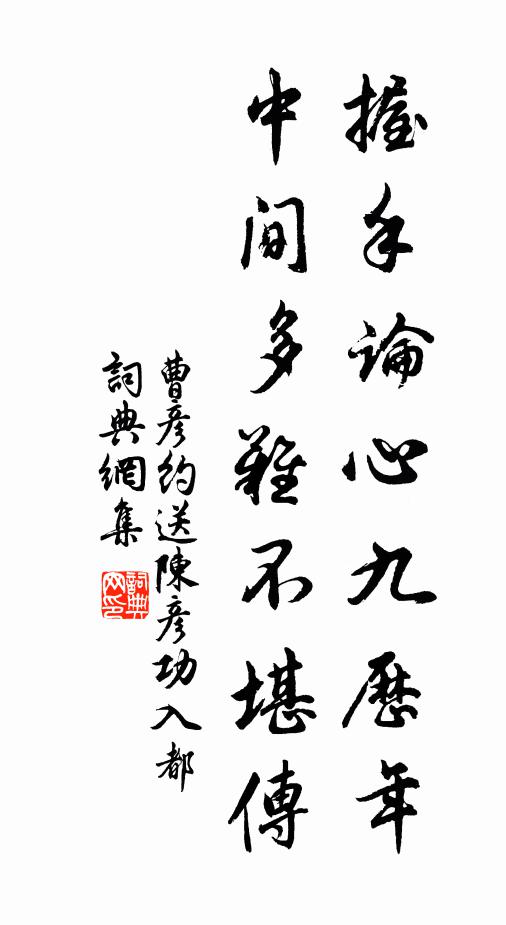 握手論心九歷年
中間多難不堪傳
曹彦約送陳彦功入都
詞典網集
詞典網印